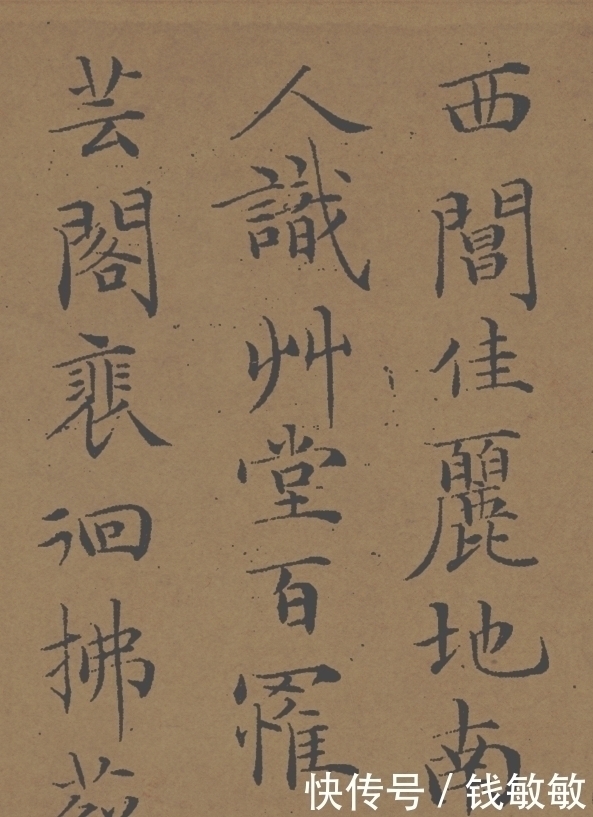 西閶佳麗地南
人識艸堂百罹
芸閣裴徊拂
快传号 / 钱敏敏